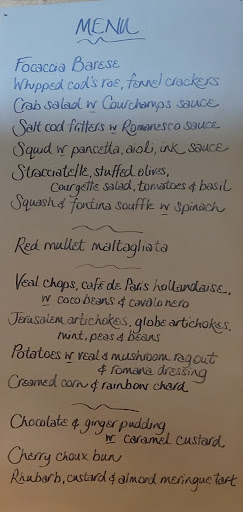 MENU
Focaccia Barese
Whipped cod's roe, fennel crackers
Crab salad w Courchamps sauce
Salt cod fritters w Romanesco sauce
Squid w pancetta, aioli, ink sauce
Stracciatelle, stuffed olives,
courgette salad, tomatoes & basil
Squash & fontina souffle w spinach
Red mullet maltagliata
Veal chops, café de Paris hollandaise,
w coco beans & cavolo nero
Jerusalem artichokes, globe artichokes,
mint, peas & beans
Potatoes w veal & mushroom ragout
& romana dressing
Creamed corn & rainbow chard
Chocolate & ginger pudding
w caramel custard
Cherry choux bun
Rhubarb, custard & almond meringue tart